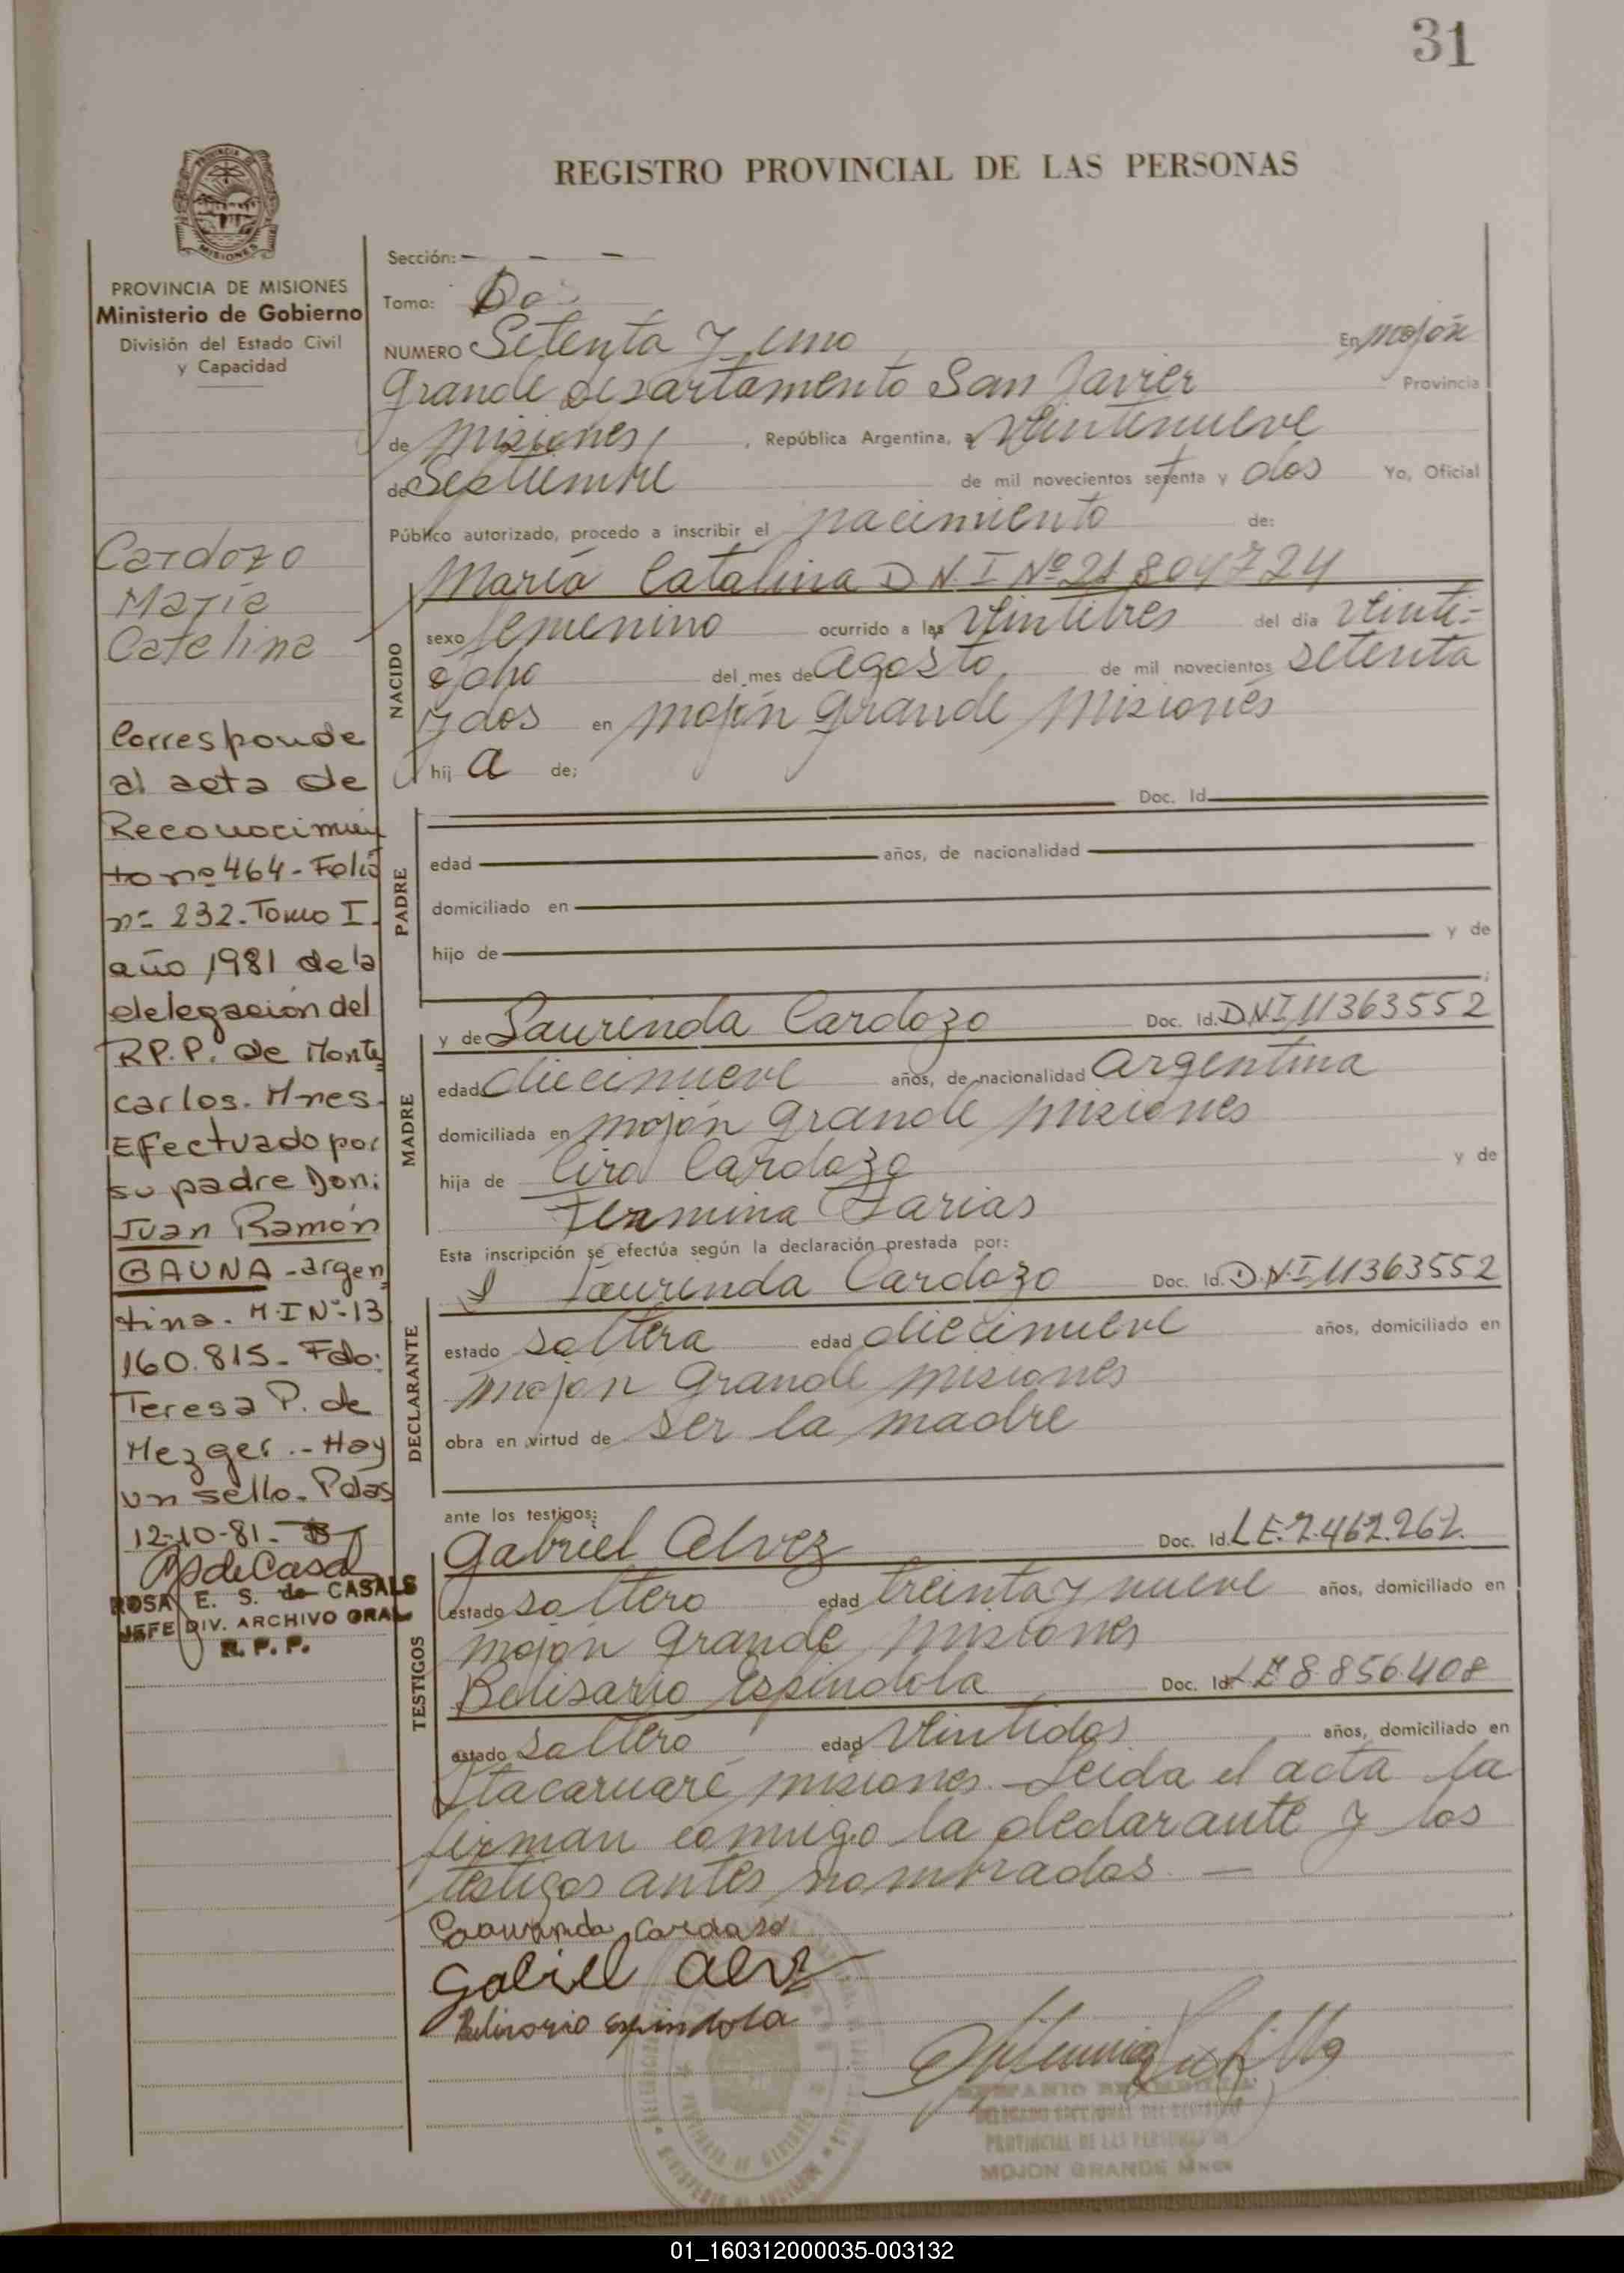 31
REGISTRO PROVINCIAL DE LAS PERSONAS
PROVINCIA DE MISIONES
Ministerio de Gobierno
División del Estado Civil
y Capacidad
Cardozo
María
Catalina
Corresponde
al acta de
Reconocimien
to nº 464 - Folio
nº 232. Tomo I.
año 1981 de la
delegación del
R.P.P. de Monte
carlos. Mnes.
Efectuado por
su padre Don:
Juan Ramón
GAUNA - argen
tina. M.I Nº 13
160.815 - Fdo:
Teresa P. de
Mezger. - Hay
un sello. Pdas
12-10-81.
ROSA E. S. de CASALS
JEFE DIV. ARCHIVO GRAL
R. P. P.
Sección: - - -
Tomo: Dos
NUMERO Setenta y uno En Mojón
Grande departamento San Javier Provincia
de Misiones, República Argentina, a Veintinueve
de Septiembre de mil novecientos setenta y dos Yo, Oficial
Público autorizado, procedo a inscribir el nacimiento de:
María Catalina D N I Nº 21 804724
NACIDO
sexo femenino ocurrido a las Veintitres del día veinti-
ocho del mes de Agosto de mil novecientos setenta
y dos en mojón grande Misiones
hij a de;
PADRE
Doc. Id.
edad años, de nacionalidad
domiciliado en
hijo de y de
MADRE
y de Laurinda Cardozo Doc. Id. DNI 11363552
edad diecinueve años, de nacionalidad argentina
domiciliada en mojón grande misiones
hija de Ciro Cardozo y de
Fermina Farias
Esta inscripción se efectúa según la declaración prestada por:
DECLARANTE
Laurinda Cardozo Doc. Id. D.N.I 11363552
estado soltera edad diecinueve años, domiciliado en
mojón grande misiones
obra en virtud de ser la madre
ante los testigos:
TESTIGOS
Gabriel Alvez Doc. Id. L E. 7.462.262.
estado soltero edad treinta y nueve años, domiciliado en
mojón grande misiones
Belisario Espindola Doc. Id. L E 8.856.408
estado soltero edad Veintidos años, domiciliado en
Itacaruaré misiones. - Leida el acta la
firman conmigo la declarante y los
testigos antes nombrados. —
Laurinda Cardoso
Gabriel Alvez
Belisario Espindola
DELEGADO SECCIONAL DEL REGISTRO
PROVINCIAL DE LAS PERSONAS
MOJON GRANDE Mnes
01_160312000035-003132